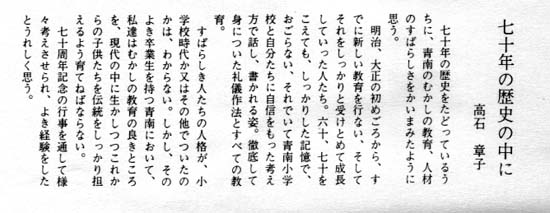 七十年の歴史の中に
高石　章子
七十年の歴史をたどっているう
ちに、青南のむかしの教育、人材
のすばらしさをかいまみたように
思う。
明治、大正の初めごろから、す
でに新しい教育を行ない、そして
それをしっかりと受けとめて成長
していった人たち。六十、七十を
こえても、しっかりした記憶で、
おごらない、それでいて青南小学
校と自分たちに自信をもった考え
方で話し、書かれる姿。徹底して
身についた礼儀作法とすべての教
育。
すばらしき人たちの人格が、小
学校時代か又はその他でついたの
かは、わからない。しかし、その
よき卒業生を持つ青南において、
私達はむかしの教育の良きところ
を、現代の中に生かしつつこれか
らの子供たちを伝統をしっかり担
えるよう育てねばならない。
七十周年記念の行事を通して様
々考えさせられ、よき経験をした
とうれしく思う。